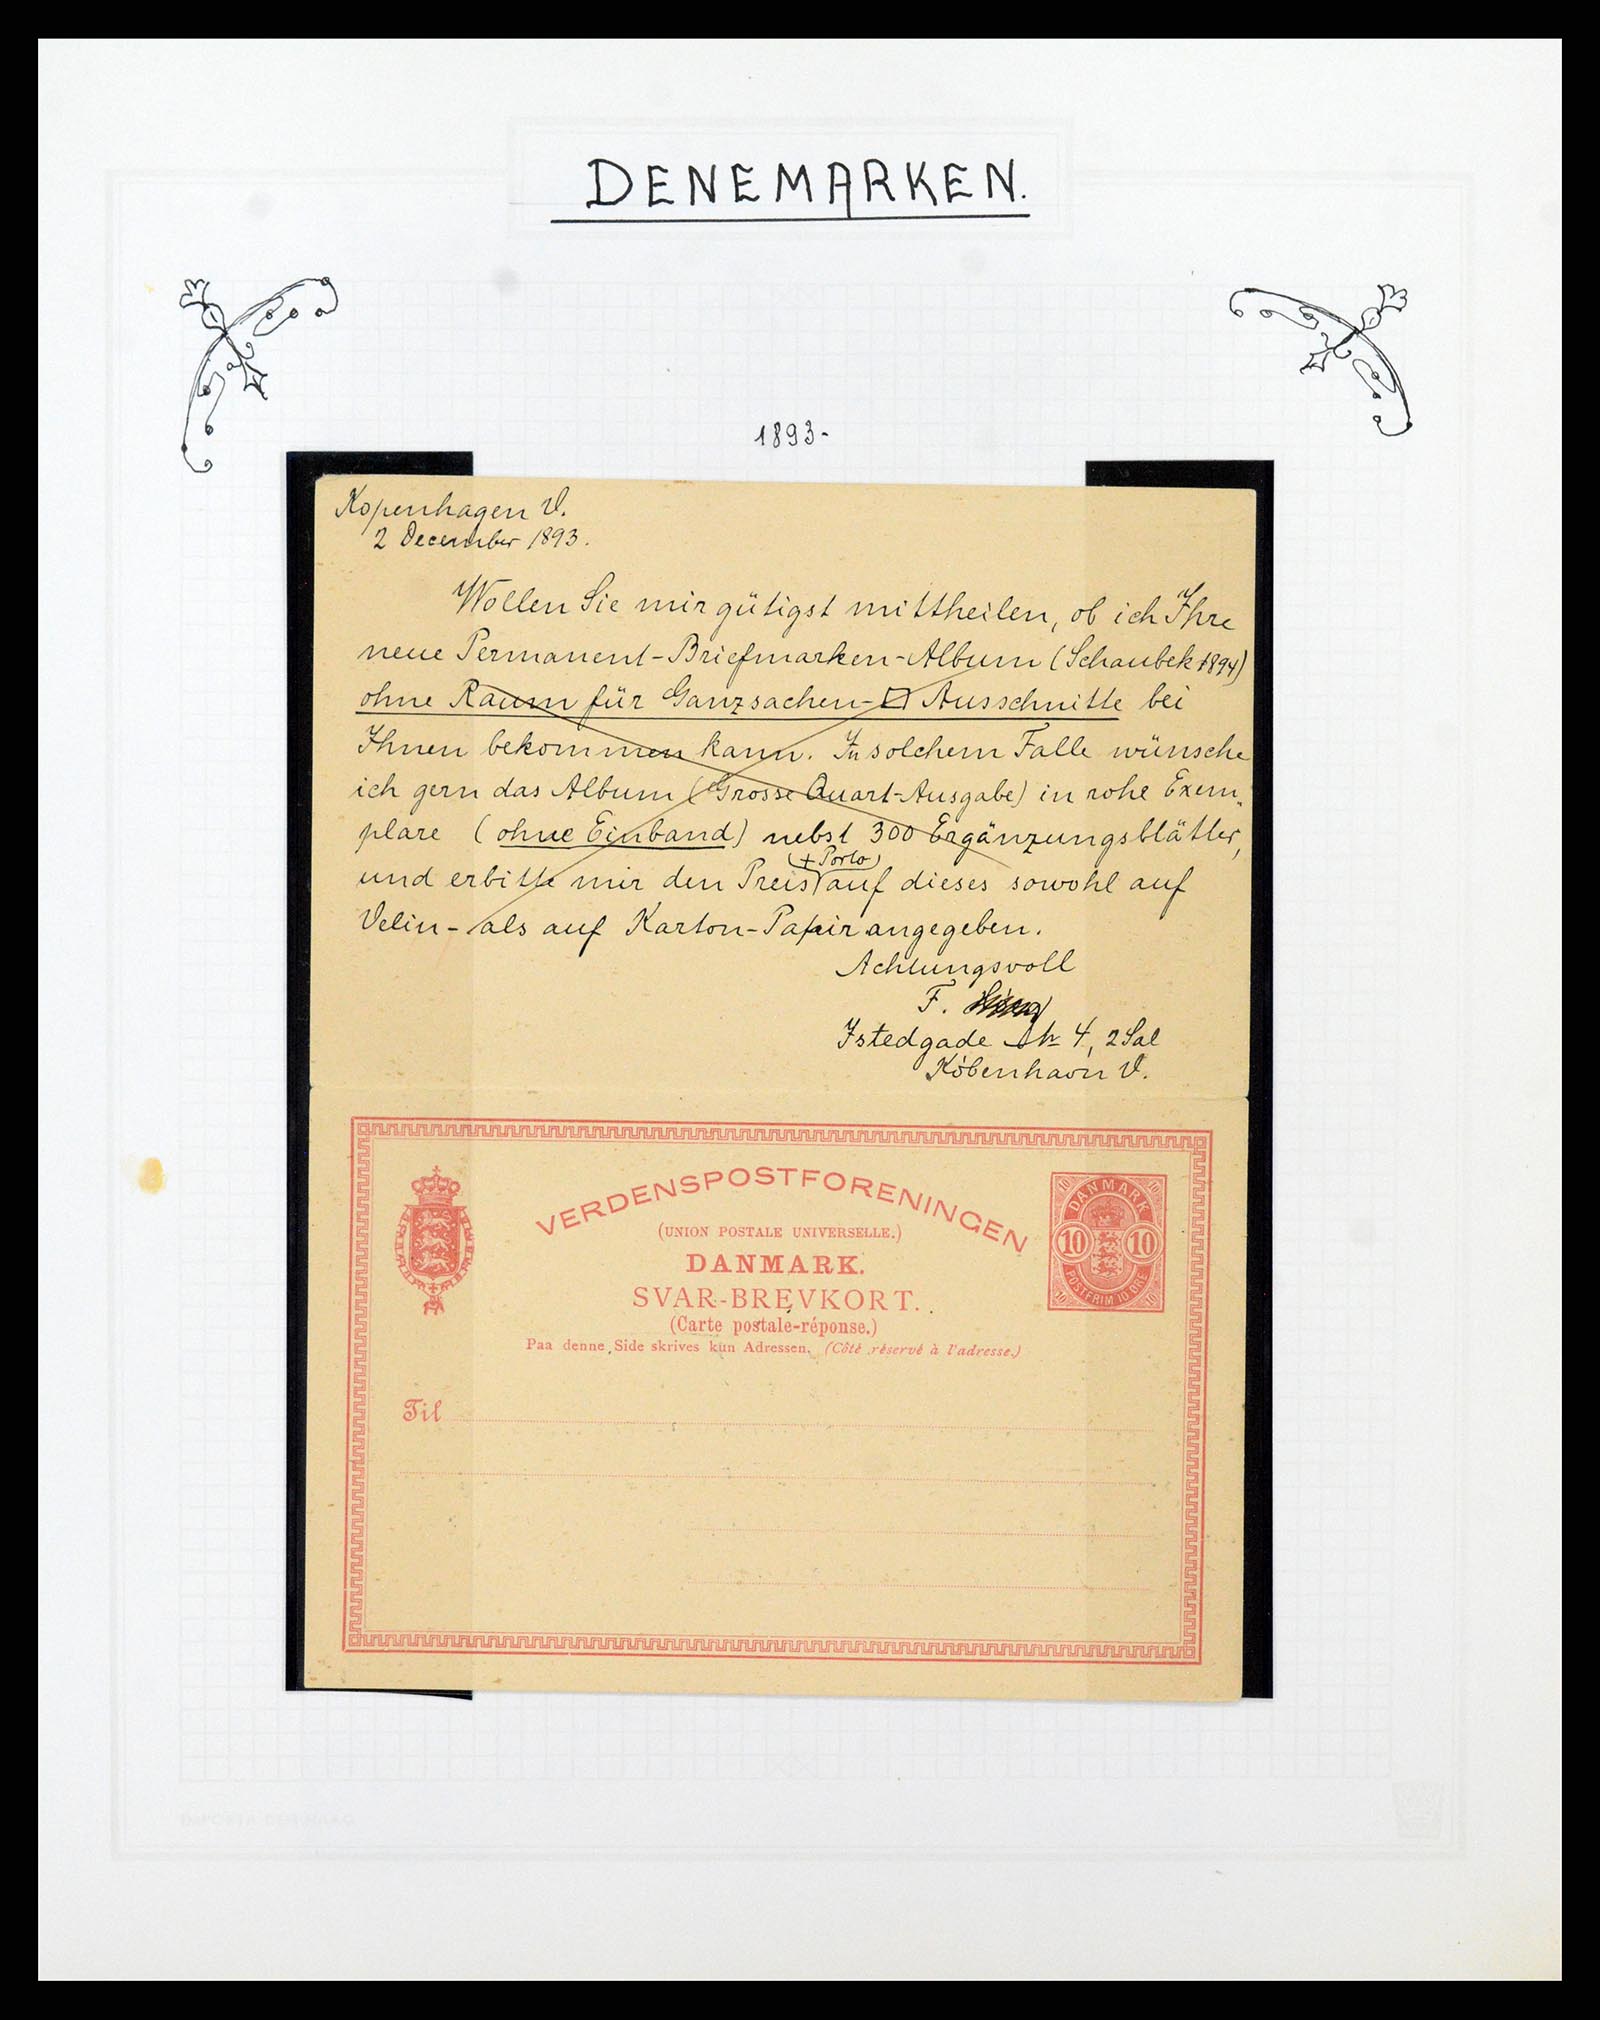 DENEMARKEN.
1893-
Kopenhagen V.
2 December 1893.
Wollen Sie mir gütigst mittheilen, ob ich Ihre
neue Permanent-Briefmarken-Album (Schaubek 1894)
ohne Raum für Ganzsachen-□ Ausschnitte bei
Ihnen bekommen kann. In solchem Falle wünsche
ich gern das Album (Grosse Quart-Ausgabe) in rohe Exem„
plare (ohne Einband) nebst 300 Ergänzungsblätter,
(+ Porto)
und erbitte mir den Preis auf dieses sowohl auf
Velin- als auf Karton-Papir angegeben.
Achtungsvoll
F.
Istedgade № 4, 2 Sal
København V.
VERDENSPOSTFORENINGEN
(UNION POSTALE UNIVERSELLE.)
DANMARK.
SVAR-BREVKORT.
(Carte postale-réponse.)
Paa denne Side skrives kun Adressen. (Côté réservé à l'adresse.)
Til
10 10
DANMARK
10 10
POSTFRIM 10 ØRE
10 10
IMPORTA DEN HAAG